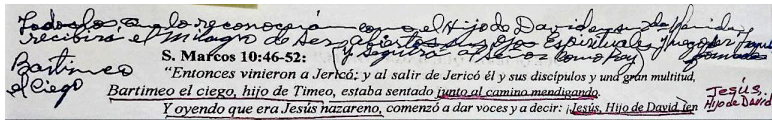 Todos los que lo reconocerá como el Hijo de David
recibirá el Milagro de Ser abiertos sus ojos Espirituales
y seguirá al Señor como
S. Marcos 10:46-52:
Bartimeo
el Ciego
"Entonces vinieron a Jericó; y al salir de Jericó él y sus discípulos y una gran multitud,
Bartimeo el ciego, hijo de Timeo, estaba sentado junto al camino mendigando.
Y oyendo que era Jesús nazareno, comenzó a dar voces y a decir: ¡Jesús, Hijo de David, ten
Jesús,
Hijo de David